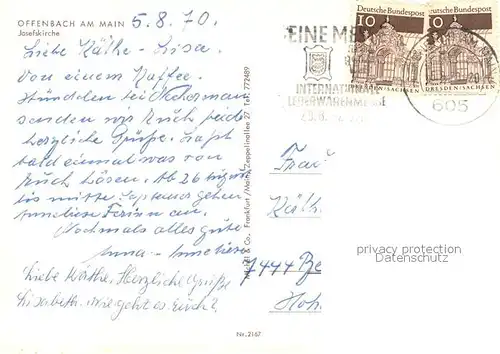 OFFENBACH AM MAIN
Josefskirche
5.8.70.
Liebe Käthe - Lisa.
Von einem Kaffee
Stündchen bei
senden wir Euch beide
herzliche Grüße. Laßt
bald einmal was von
Euch hören. Ab 26
bis mitte gehen
Ferien an.
Nochmals alles gute
Anna -
Liebe Herzliche Grüße
Elisabeth. Wie geht es Euch?
Michel & Co., Frankfurt /Main, Zeppelinallee 27 Tel. 772489
Nr. 2167
EINE
INTERNATIONALE
LEDERWARENMESSE
Deutsche Bundespost
10
DRESDEN/SACHSEN
Deutsche Bundespost
10
DRESDEN/SACHSEN
605
Frau
Käth
7444 Be
Hoh
privacy protection
Datenschutz